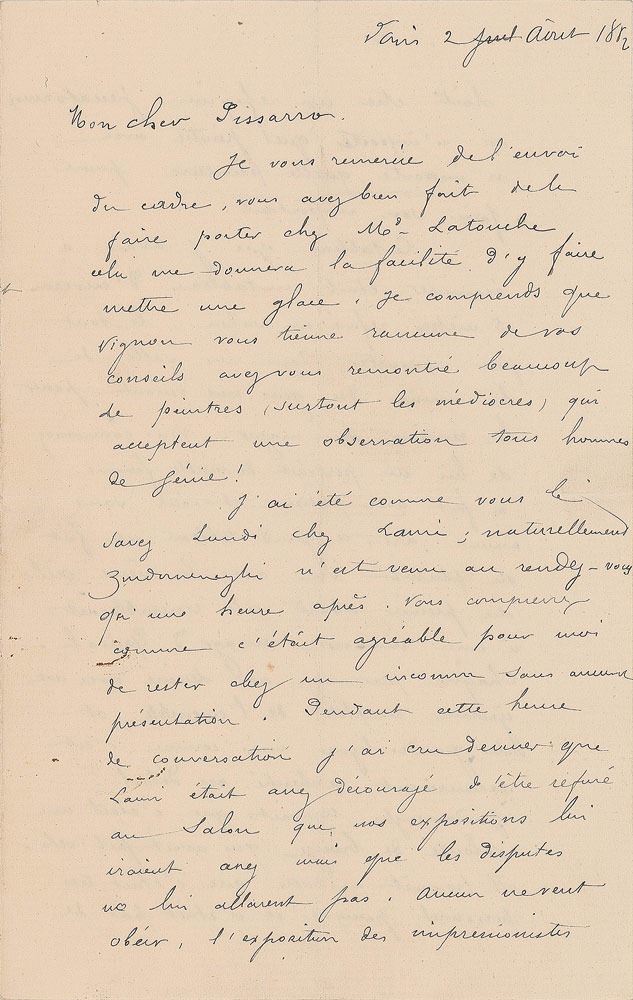 Paris 2 Juil Août 1882
Mon cher Pissarro.
Je vous remercie de l'envoi
du cadre, vous avez bien fait de le
faire porter chez Mr. Latouche
cela me donnera la facilité d'y faire
mettre une glace. Je comprends que
Vignon vous tienne rancune de vos
conseils avez vous remontré beaucoup
de peintres (surtout les médiocres) qui
acceptent une observation tous hommes
de génie!
J'ai été comme vous le
savez Lundi chez Lami; naturellement
Zandomeneghi n'est venu au rendez-vous
qu'une heure après. Vous comprenez
comme c'était agréable pour moi
de rester chez un inconnu sans aucune
présentation. Pendant cette heure
de conversation j'ai cru deviner que
Lami était assez découragé d'être refusé
au Salon que nos expositions lui
iraient assez mais que les disputes
ne lui allaient pas. Aucun ne veut
obéir, l'exposition des impressionistes